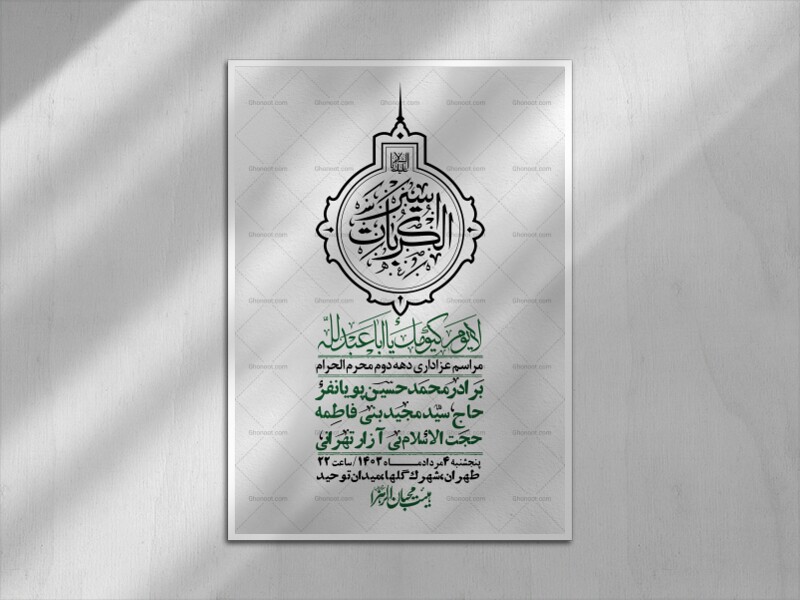 علیه السلام
اسیر
الکربات
لا یوم کیومک یا اباعبدلله
مراسم عزاداری دهه دوم محرم الحرام
برادر محمدحسین پویانفر
حاج سیدمجید بنی فاطمه
حجت الاسلام بی آزار تهرانی
پنجشنبه ۴ مرداد مـاه ۱۴۰۳ / ساعت ۲۲
طهران، شهرک گلها، میدان توحید
هیئت محبان الزهرا
Ghonoot.com